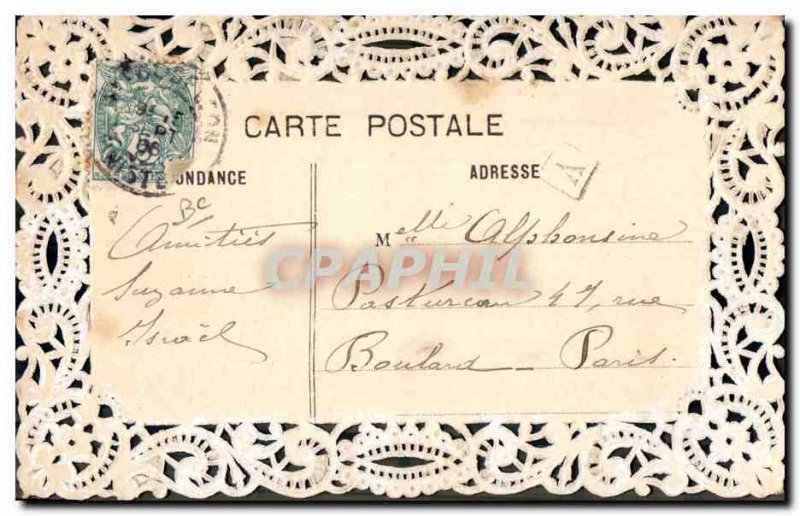 CARTE POSTALE
ONDANCE
ADRESSE
A
Bc
Amitiés
Suzanne
Israël
Melle Alphonsine
Pastureau 47, rue
Boulard - Paris.
CPAPHIL
5
06